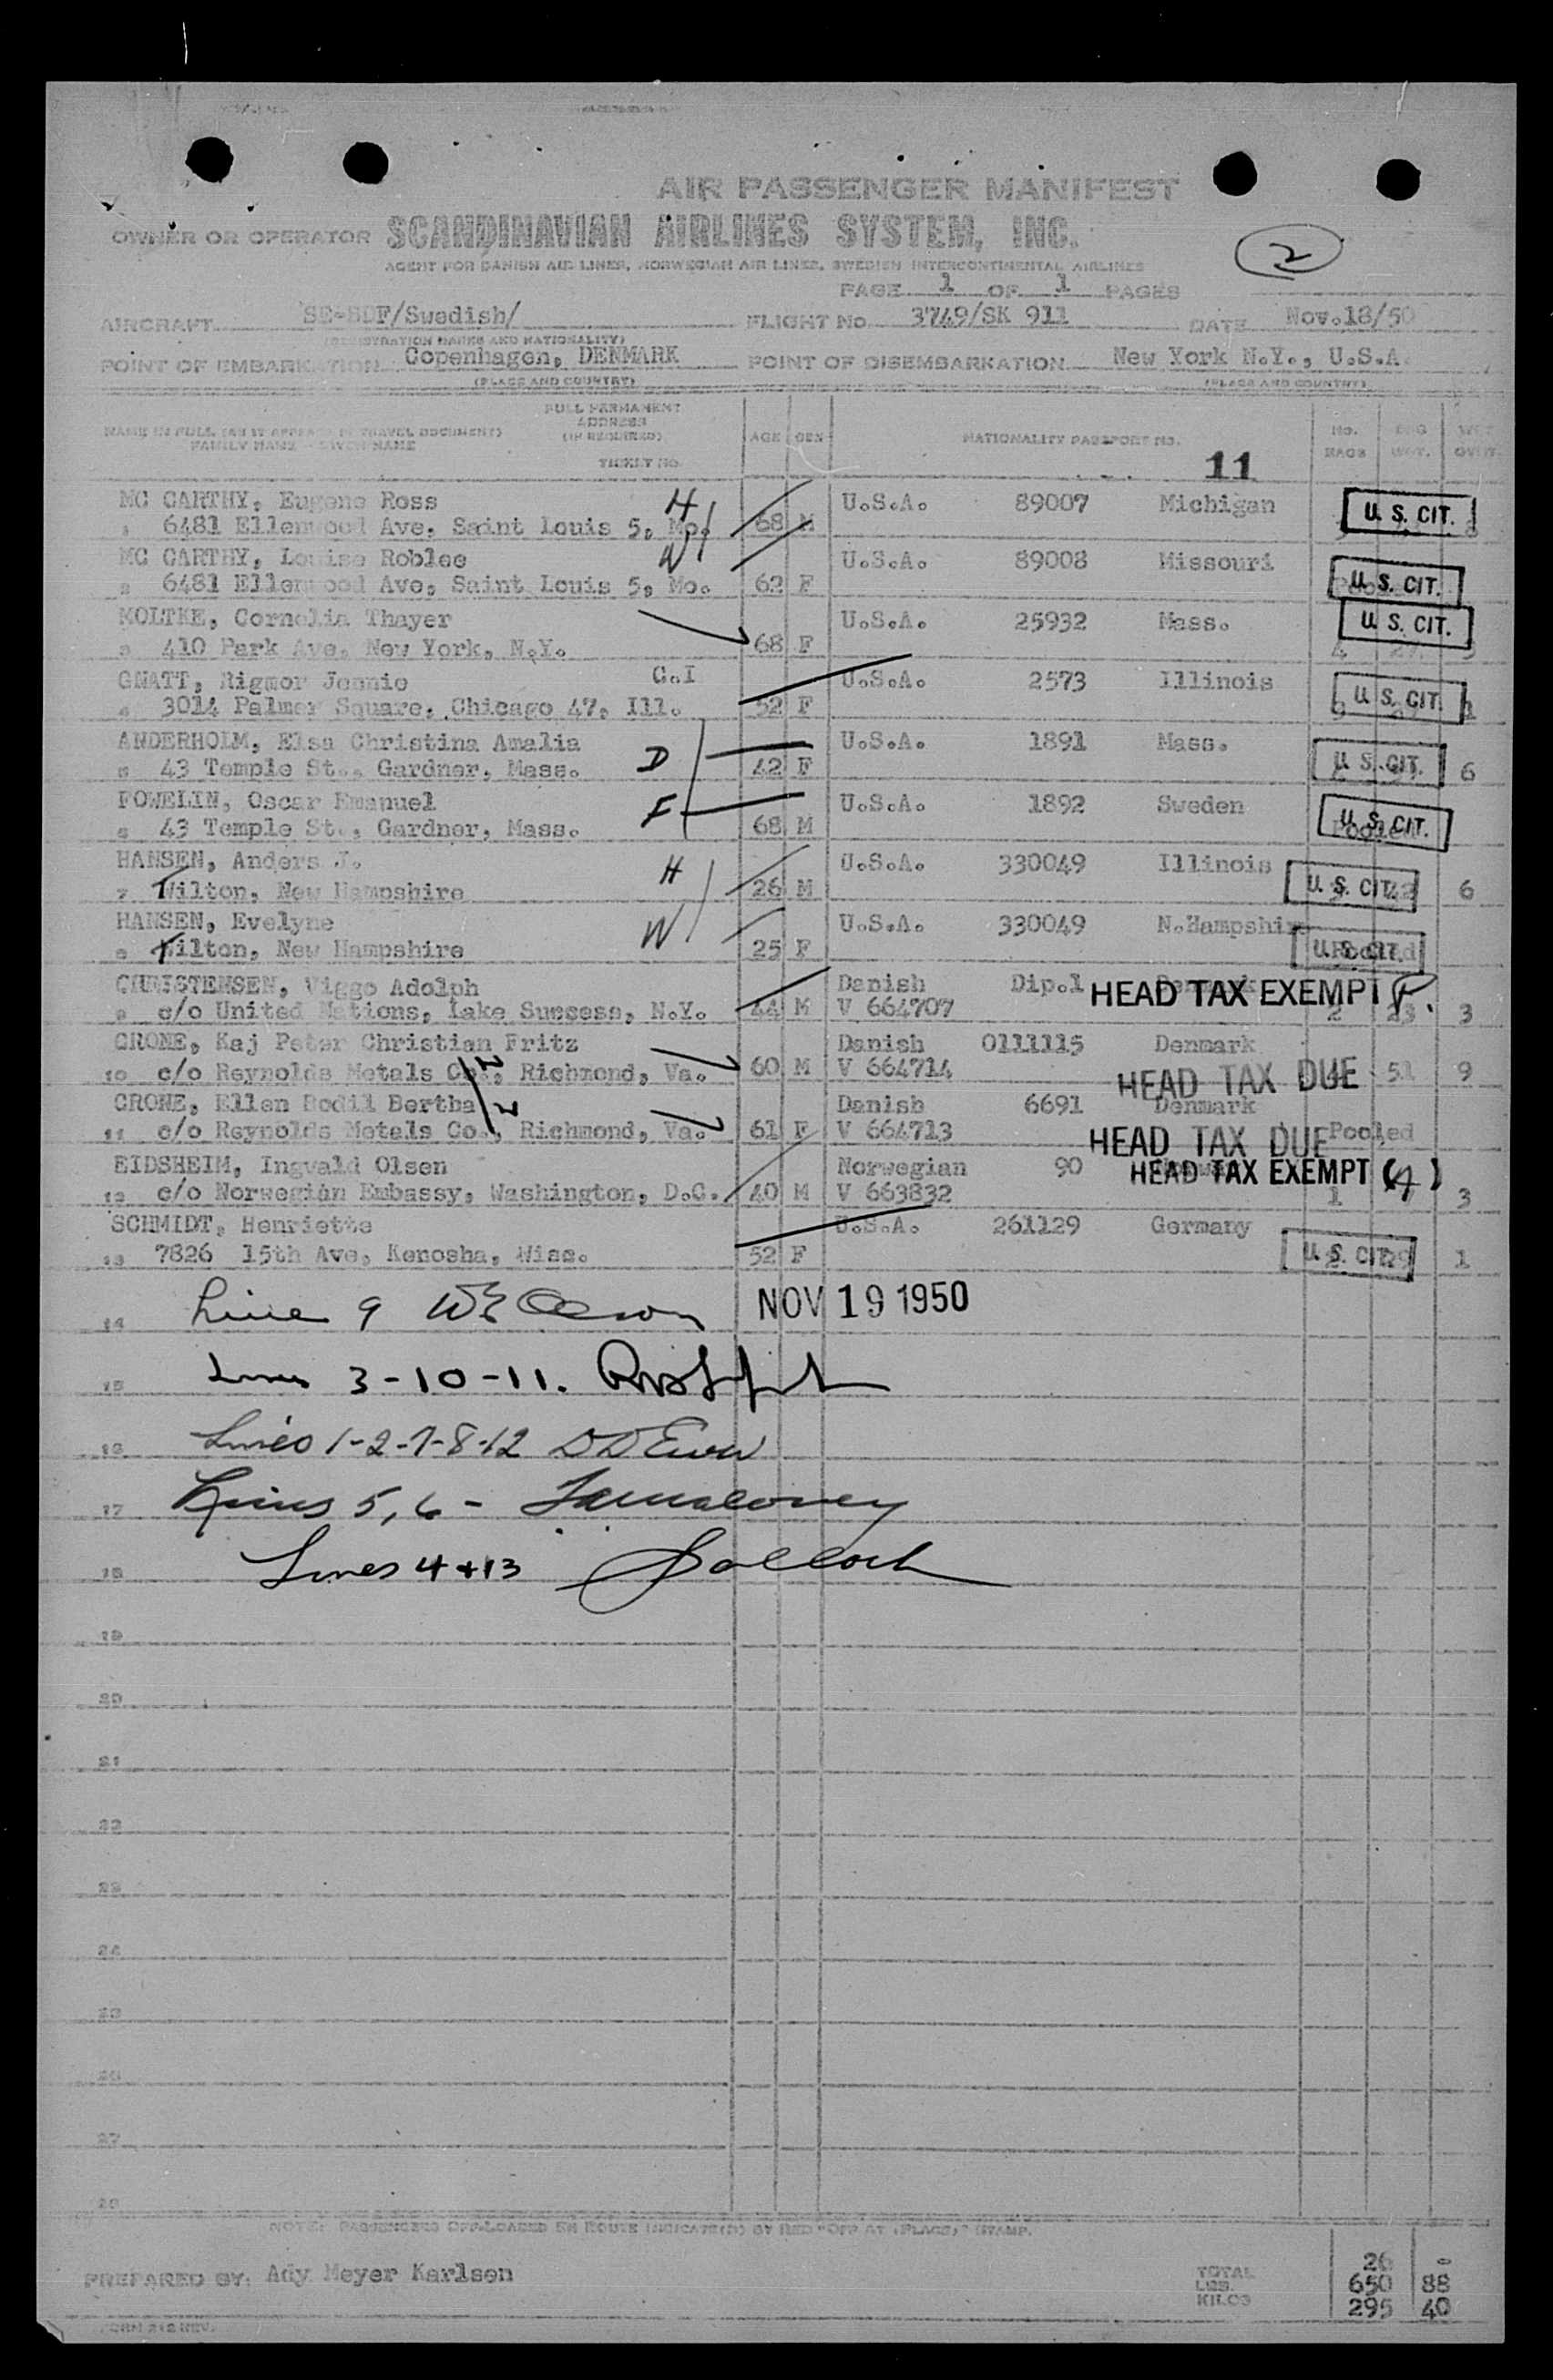 AIR PASSENGER MANIFEST
OWNER OR OPERATOR SCANDINAVIAN AIRLINES SYSTEM, INC.
AGENT FOR DANISH AIR LINES, NORWEGIAN AIR LINES, SWEDISH INTERCONTINENTAL AIRLINES
2
PAGE 1 OF 1 PAGES
AIRCRAFT SE-BDF/Swedish/ FLIGHT No. 3749/SK 911 DATE Nov.18/50
(REGISTRATION MARKS AND NATIONALITY)
POINT OF EMBARKATION Copenhagen, DENMARK POINT OF DISEMBARKATION New York N.Y., U.S.A.
(PLACE AND COUNTRY) (PLACE AND COUNTRY)
FULL PERMANENT
ADDRESS
(IF REQUIRED)
NAME IN FULL (AS IT APPEARS IN TRAVEL DOCUMENT)
FAMILY NAME GIVEN NAME
TICKET NO.
AGE SEX NATIONALITY PASSPORT NO. No. BAGS WGT.
11
MC CARTHY, Eugene Ross H U.S.A. 89007 Michigan U. S. CIT.
1 6481 Ellenwood Ave, Saint Louis 5, Mo. 68 M
MC CARTHY, Louise Roblee W U.S.A. 89008 Missouri U. S. CIT.
2 6481 Ellenwood Ave, Saint Louis 5, Mo. 62 F
MOLTKE, Cornelia Thayer U.S.A. 25932 Mass. U. S. CIT.
3 410 Park Ave, New York, N.Y. 68 F
GNATT, Rigmor Jennie C.I U.S.A. 2573 Illinois U. S. CIT.
4 3014 Palmer Square, Chicago 47, Ill. 52 F
ANDERHOLM, Elsa Christina Amalia D U.S.A. 1891 Mass. U. S. CIT.
5 43 Temple St., Gardner, Mass. 42 F 6
FOWELIN, Oscar Emanuel F U.S.A. 1892 Sweden U. S. CIT.
6 43 Temple St., Gardner, Mass. 68 M Pooled
HANSEN, Anders J. H U.S.A. 330049 Illinois U. S. CIT.
7 Wilton, New Hampshire 26 M 42 6
HANSEN, Evelyne W U.S.A. 330049 N.Hampshire U. S. CIT.
8 Wilton, New Hampshire 25 F Pooled
CHRISTENSEN, Viggo Adolph Danish Dipl Denmark HEAD TAX EXEMPT
9 c/o United Nations, Lake Success, N.Y. 44 M V 664707 2 23 3
CRONE, Kaj Peter Christian Fritz Danish 0111115 Denmark
10 c/o Reynolds Metals Co., Richmond, Va. 60 M V 664714 HEAD TAX DUE 51 9
CRONE, Ellen Bodil Bertha Danish 6691 Denmark
11 c/o Reynolds Metals Co., Richmond, Va. 61 F V 664713 HEAD TAX DUE Pooled
EIDSHEIM, Ingvald Olsen Norwegian 90 HEAD TAX EXEMPT (4)
12 c/o Norwegian Embassy, Washington, D.C. 40 M V 663832 1 3
SCHMIDT, Henriette U.S.A. 261129 Germany U. S. CIT.
13 7826 15th Ave, Kenosha, Wisc. 52 F 1
14 Line 9 NOV 19 1950
15 Lines 3-10-11.
16 Lines 1-2-7-8-12
17 Lines 5, 6 -
18 Lines 4 + 13
19
20
21
22
23
24
25
26
27
28
NOTE: PASSENGERS OFF-LOADED EN ROUTE INDICATE(D) BY RED "OFF AT (PLACE)" STAMP.
PREPARED BY: Ady Meyer Karlsen
TOTAL 26 -
LBS. 650 88
KILOS 295 40
FORM 212 REV.